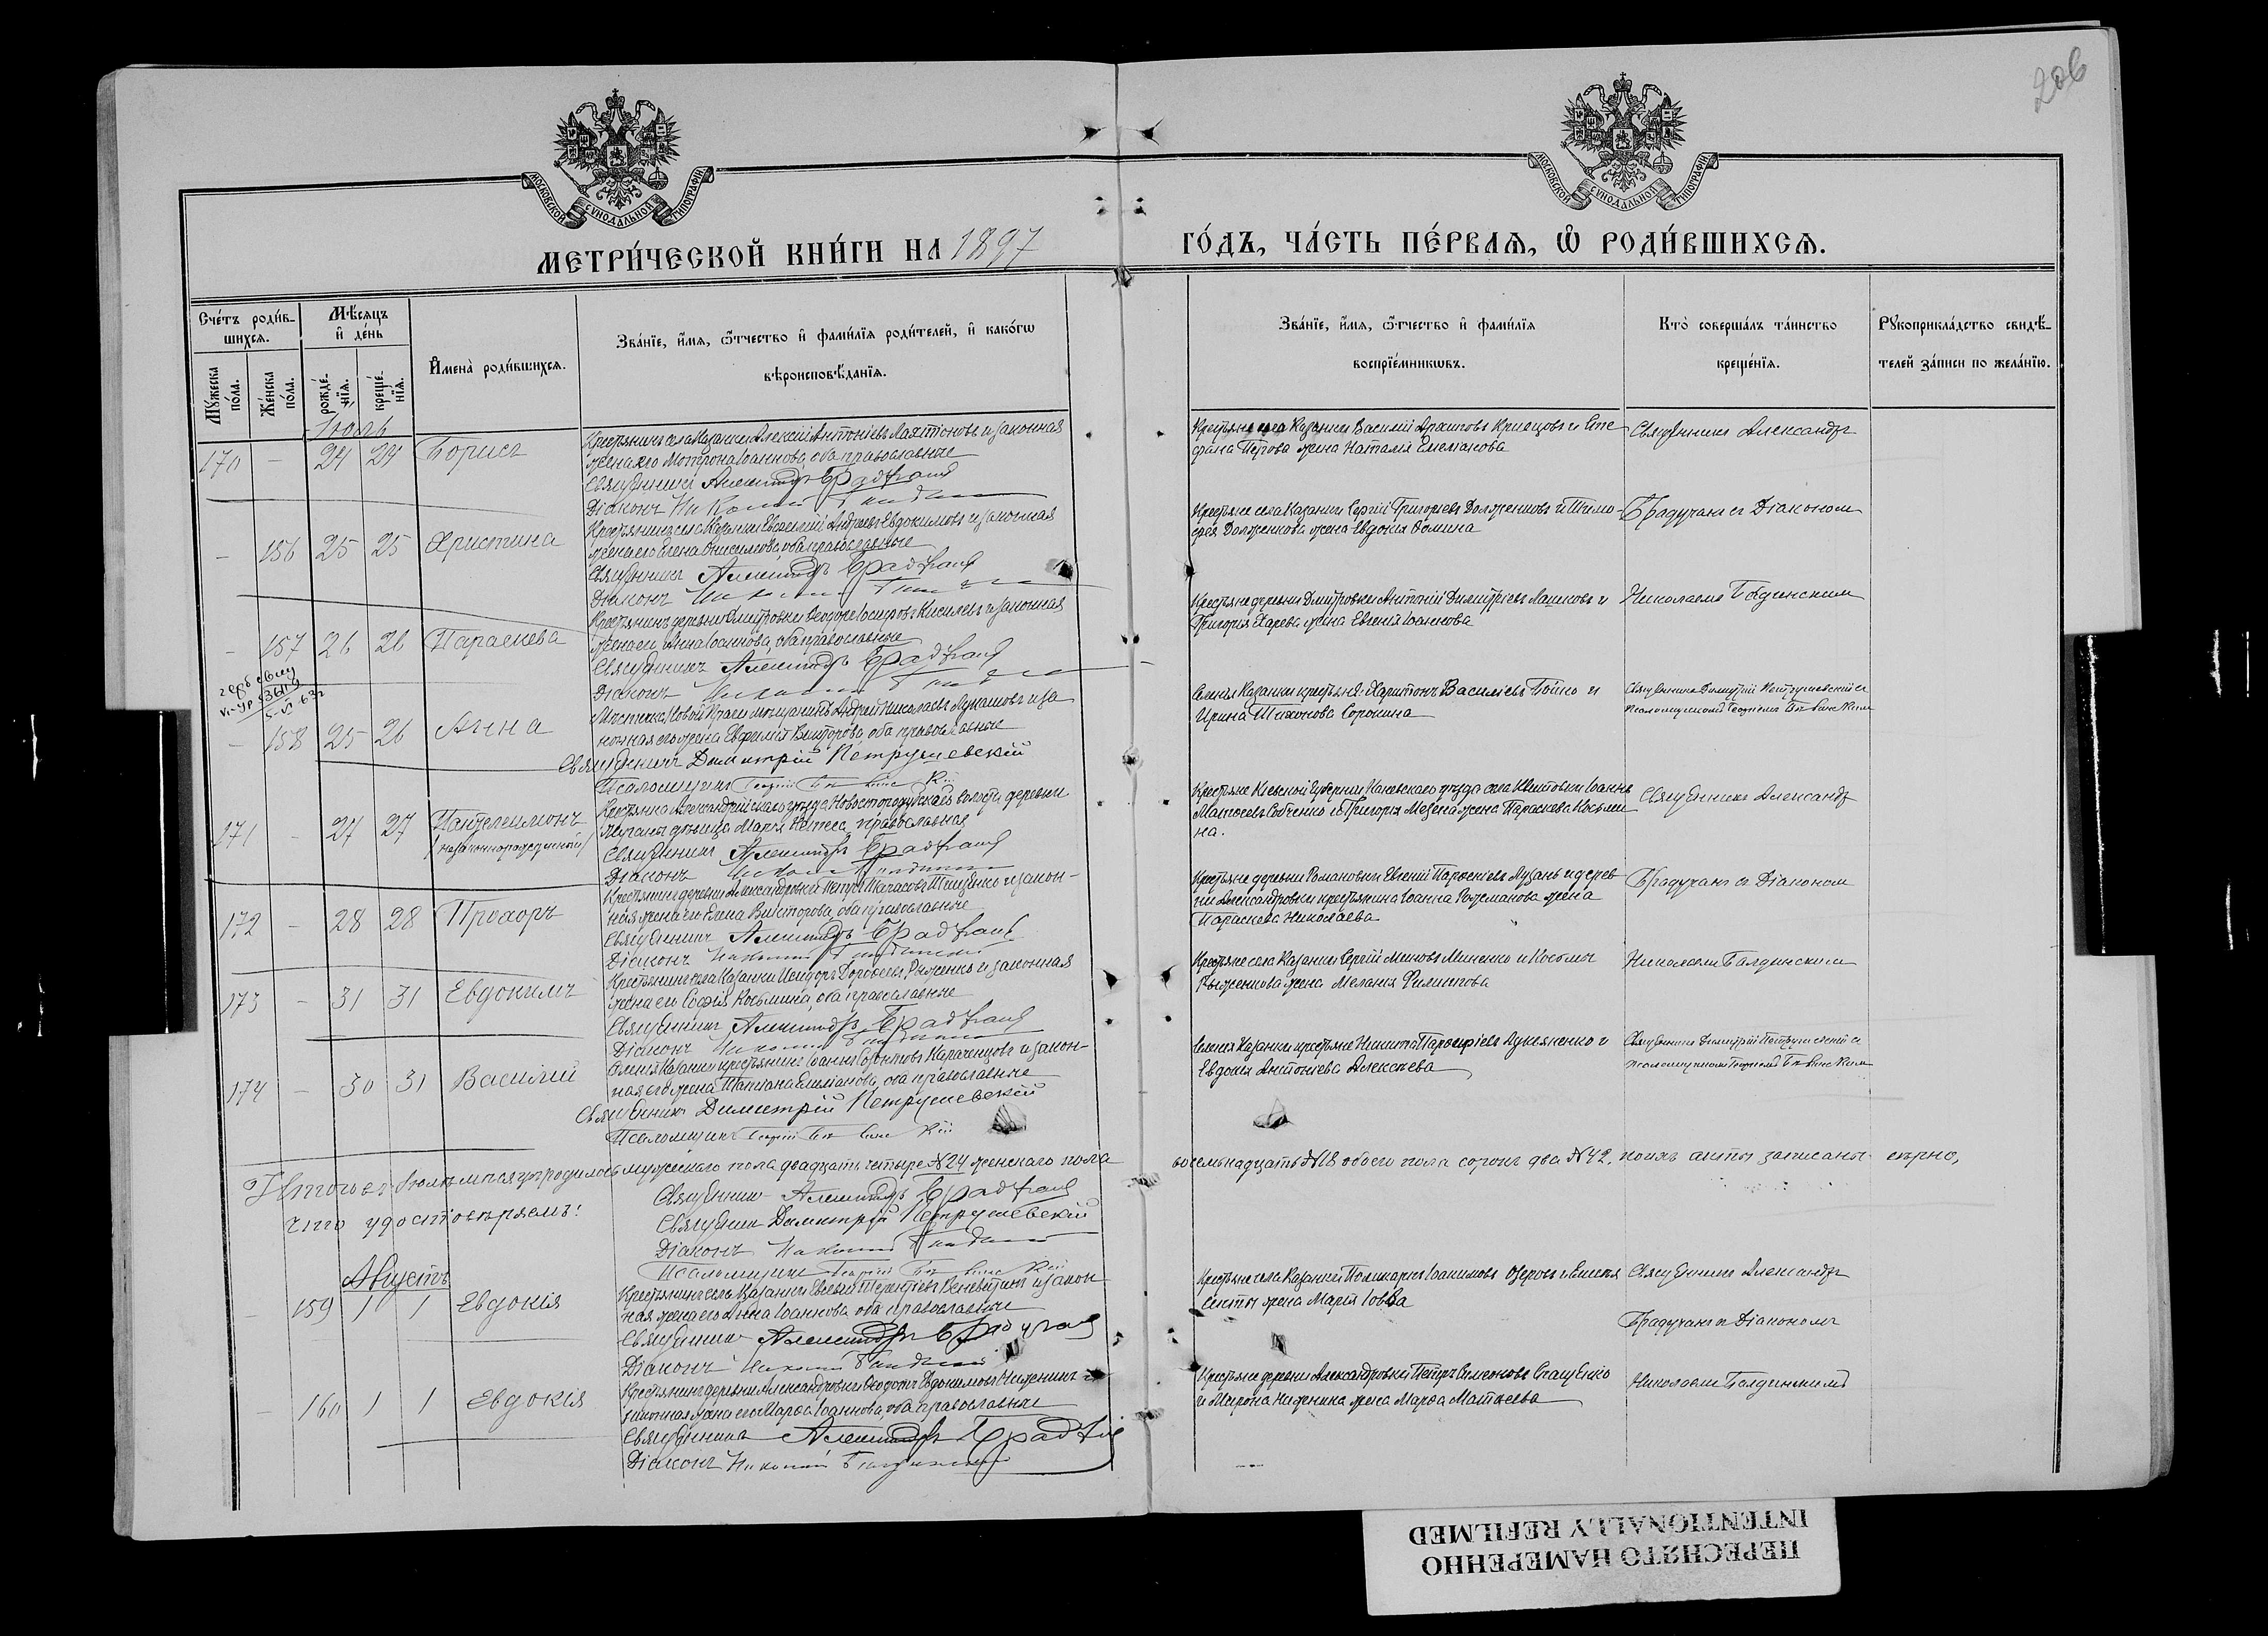 206
МОСКОВСКОЙ СУНОДАЛЬНОЙ ТИПОГРАФІИ
МОСКОВСКОЙ СУНОДАЛЬНОЙ ТИПОГРАФІИ
МЕТРИ́ЧЕСКОЙ КНИ́ГИ НА 1897
ГО́ДЪ, ЧА́СТЬ ПЕ́РВАЯ, Ѡ҆ РОДИ́ВШИХСЯ.
Сче́тъ роди́в-
шихся.
Му́жеска по́ла.
Же́нска по́ла.
Мѣ́сяцъ
и҆ де́нь
рожде́-
нїя.
креще́-
нїя.
И҆мена̀ роди́вшихся.
Зва́нїе, и҆́мя, ѻ҆́тчество и҆ фами́лїя роди́телей, и҆ како́гѡ
вѣроисповѣ́данїя.
Зва́нїе, и҆́мя, ѻ҆́тчество и҆ фами́лїя
воспрїе́мникѡвъ.
Кто̀ соверша́лъ та́инство
креще́нїя.
Рꙋкоприкла́дство свидѣ́-
телей за́писи по жела́нїю.
Іюль
170 - 24 24 Борисъ
Крестьянинъ села Казанки Алексій Антоніевъ Лахтіоновъ и законная
жена его Мотрона Іоаннова, оба православные
Священникъ Александръ Брадучанъ
Діаконъ Николай
Крестьяне села Казанки Василій Кривцовъ и Сте-
фана Петрова жена Наталія Емельянова
Священникъ Александръ
- 156 25 25 Христина
Крестьянинъ села Казанки Евфимій Андреевъ Евдокимовъ и законная
жена его Елена Онисимова, оба православные
Священникъ Александръ Брадучанъ
Діаконъ Николай
Крестьяне села Казанки Сергій Григорьевъ Долженковъ и Тимо-
фея Долженкова жена Евдокія Фомина
Брадучанъ съ Діакономъ
- 157 26 26 Параскева
Крестьянинъ деревни Дмитровки Ѳеодоръ Іосифовъ Киселевъ и законная
жена его Анна Іоаннова, оба православные
Священникъ Александръ Брадучанъ
Діаконъ Николай
Крестьяне деревни Дмитровки Антоній Димитріевъ Машковъ и
Григорія Харева жена Евгенія Іоаннова
Николаемъ
- 158 25 26 Анна
Мѣстечка Новой Праги мѣщанинъ Андрей Николаевъ Лукашовъ и за
конная его жена Евфимія Викторова, оба православные
Священникъ Димитрій Петрушевскій
Псаломщикъ Георгій
Селенія Казанки крестьяне: Харитонъ Василіевъ Бойко и
Ирина Тихонова Сорокина
Священникъ Димитрій Петрушевскій съ
псаломщикомъ Георгіемъ
171 - 27 27 Пантелеимонъ
/незаконнорожденный/
Крестьянка Александрійскаго уѣзда Новостародубской волости деревни
дѣвица Марія православная
Священникъ Александръ Брадучанъ
Діаконъ
Крестьяне Кіевской губерніи Каневскаго уѣзда села Іоаннъ
Матѳеевъ Собченко и Григорія Мезена жена Параскева Косьми-
на.
Священникъ Александръ
172 - 28 28 Прохоръ
Крестьянинъ деревни Александровки Петръ Тищенко и закон-
ная жена его Елена Викторова, оба православные
Священникъ Александръ Брадучанъ
Діаконъ Николай
Крестьяне деревни Романовки Евгеній Парѳеніевъ Лузанъ и дерев-
ни Александровки крестьянина Іоанна Рожманова жена
Параскева Николаева
Брадучанъ съ Діакономъ
173 - 31 31 Евдокимъ
Крестьянинъ села Казанки Исидоръ Дороѳеевъ Рыженко и законная
жена его Софія Косьмина, оба православные
Священникъ Александръ Брадучанъ
Діаконъ Николай
Крестьяне села Казанки Сергій Миненко и Косьмы
Рыженкова жена Меланія Филиппова
Николаемъ
174 - 30 31 Василій
Селенія Казанки крестьянинъ Іоаннъ и закон-
ная его жена Татіана Емиліанова, оба православные
Священникъ Димитрій Петрушевскій
Псаломщикъ Георгій
Селенія Казанки крестьяне Никита Лукьяненко и
Евдокія Антоніева Алексѣева
Священникъ Димитрій Петрушевскій съ
псаломщикомъ Георгіемъ
Итого въ Іюлѣ мѣсяцѣ родилось мужескаго пола двадцать четыре №24 женскаго пола
восемьнадцать №18 обоего пола сорокъ два №42, коихъ акты записаны вѣрно,
что удостовѣряемъ:
Священникъ Александръ Брадучанъ
Священникъ Димитрій Петрушевскій
Діаконъ Николай
Псаломщикъ Георгій
Августъ
- 159 1 1 Евдокія
Крестьянинъ села Казанки Терентіевъ и закон-
ная жена его Анна Іоаннова оба православные
Священникъ Александръ Брадучанъ
Діаконъ Николай
Крестьяне села Казанки Поликарпъ Іоакимовъ Озеровъ и
жена Марія Іовва
Священникъ Александръ
Брадучанъ съ Діакономъ
- 160 1 1 Евдокія
Крестьянинъ деревни Александровки Ѳеодотъ Евдокимовъ и
законная жена его Марѳа Іоаннова, оба православные
Священникъ Александръ
Діаконъ Николай
Крестьяне деревни Александровки Петръ Симеоновъ Стаценко
и Мирона жена Марѳа Матѳеева
Николаемъ
ПЕРЕСНЯТО НАМЕРЕННО
INTENTIONALLY REFILMED